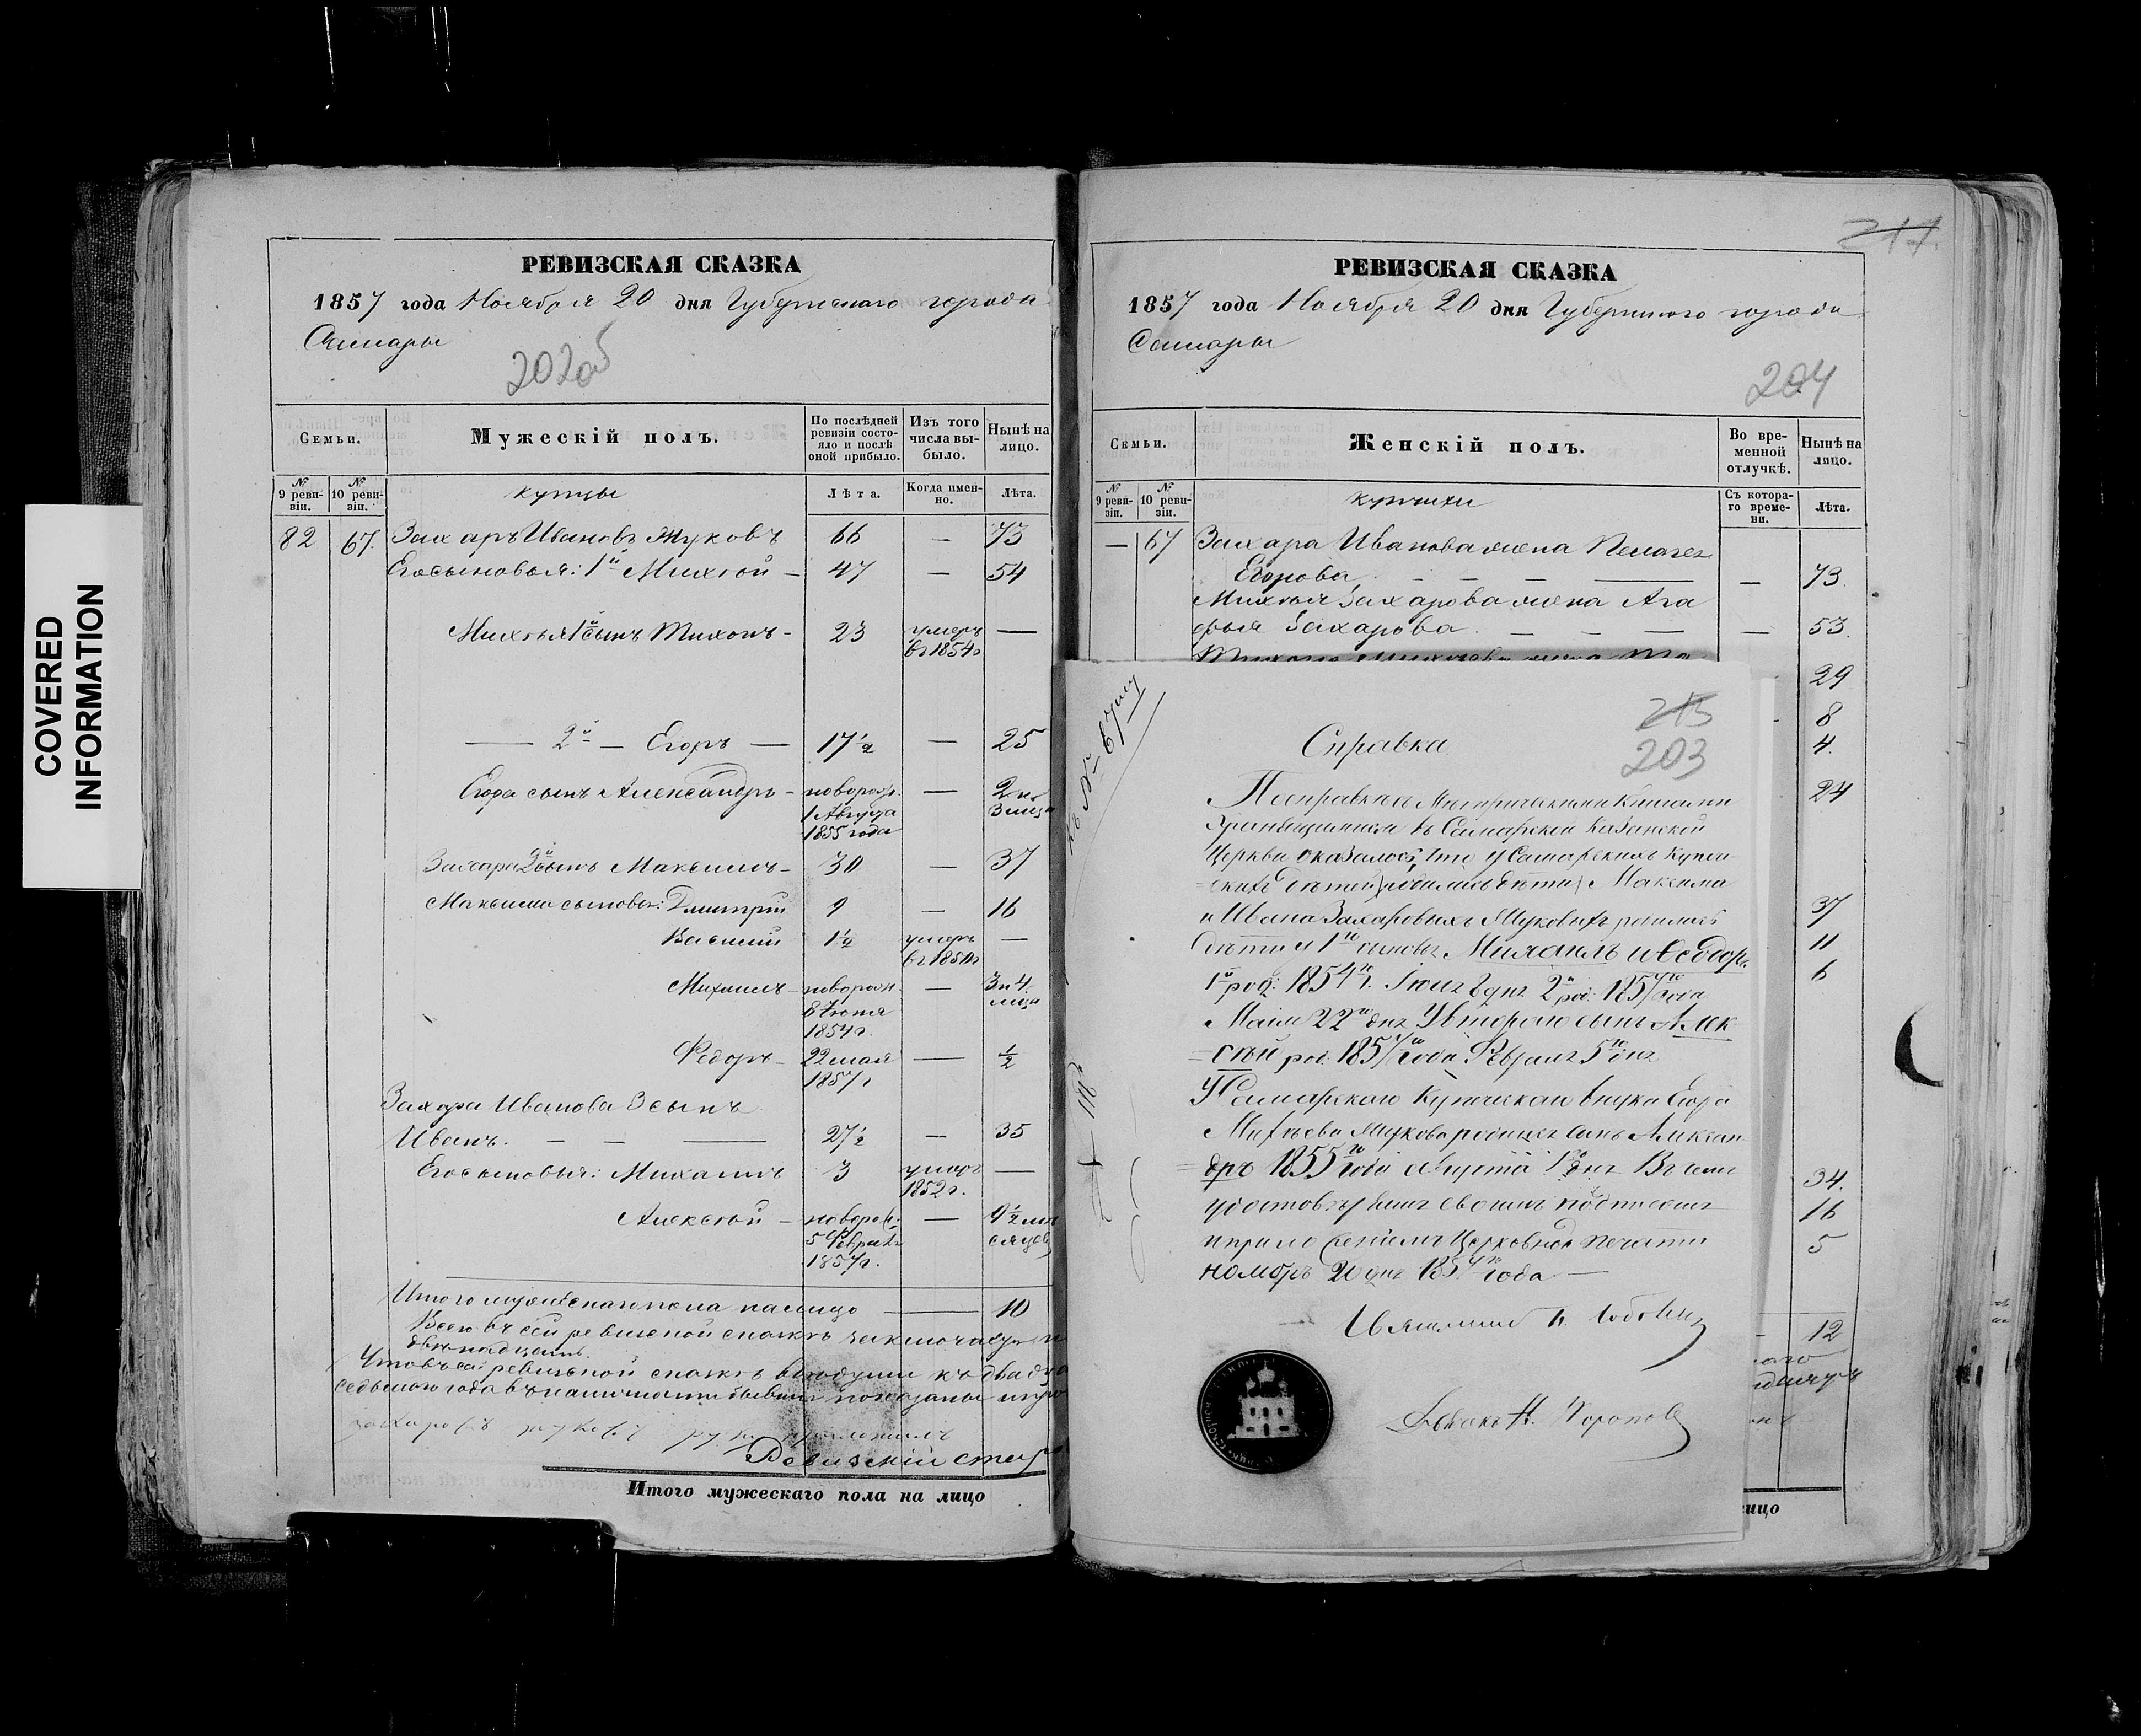 COVERED
INFORMATION
РЕВИЗСКАЯ СКАЗКА
1857 года Ноября 20 дня Губернскаго города
Самары
202об
Семьи.
Мужескій полъ.
По послѣдней ревизіи состояло и послѣ оной прибыло.
Изъ того числа выбыло.
Нынѣ на лицо.
№ 9 ревизіи.
№ 10 ревизіи.
купцы
Лѣта.
Когда именно.
Лѣта.
82 67. Захаръ Ивановъ Жуковъ 66 — 73
Его сыновья: 1й Михѣй — 47 — 54
Михѣя 1й сынъ Тихонъ - 23 умеръ въ 1854г —
— 2й — Егоръ — 17½ — 25
Егора сынъ Александръ - новорож. 1 Августа 1855 года — 2 и 3 мѣсц
Захара 2й сынъ Максимъ - 30 — 37
Максима сыновья: Дмитрій 9 — 16
Василій 1½ умеръ —
Михаилъ новорож. 8 Іюня 1854г. — 3 и 4 мсца
Федоръ - 22 мая 1857г — ½
Захара Иванова 3 сынъ
Иванъ. — — — 27½ — 35
Его сыновья: Михаилъ 3 умеръ 1852г. —
Алексѣй - новорож: 5 Февраля 1857г. — 9½ мѣсяцев
Итого мужескаго пола на лицо — 10
Всего въ сей ревизской сказкѣ
двѣнадцать.
Что въ сей ревизской сказкѣ всѣ души къ двадца
седьмого года въ наличности бывшія показаны
Ревизскій
Итого мужескаго пола на лицо
РЕВИЗСКАЯ СКАЗКА
1857 года Ноября 20 дня Губернскаго города
Самары
204
Семьи.
Женскій полъ.
Во временной отлучкѣ.
Нынѣ на лицо.
№ 9 ревизіи.
№ 10 ревизіи.
купчихи
Съ котораго времени.
Лѣта.
— 67 Захара Иванова жена Пелагея
Егорова — — — — — 73.
Михѣя Захарова жена Ага
фья Захарова. — — — — 53.
29
8
4.
24
37
11
6
34.
16
5
12
лицо
215
203
Справка
По справкѣ съ Метрическими Книгами
хранящимися въ Самарской Казанской
Церкви оказалось, что у Самарскихъ Купече
скихъ дѣтей родились дѣти Максима
и Ивана Захаровыхъ Жуковыхъ родились
дѣти у 1го сыновья Михаилъ и Ѳеодоръ
1й род: 1854го г. Іюня 8 дня 2й род: 1857го года
Маія 22го дня У втораго сынъ Алек
=сѣй род: 1857го года Февраля 5го дня
У Самарскаго Купеческаго внука Егора
Михѣева Жукова родился сынъ Алексан
=дръ 1855го года Августа 1го дня Въ чемъ
удостовѣряемъ своимъ подписомъ
и приложеніемъ Церковной печати
ноября 20 дня 1857го года —